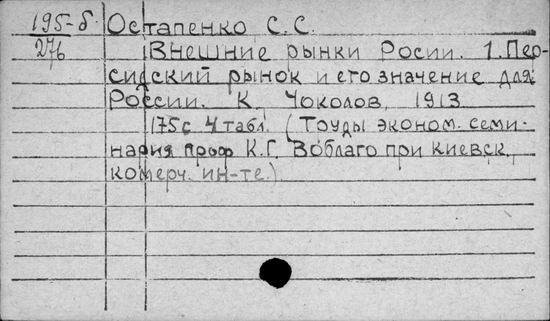 195-б Остапенко, С.С.
276 Внешние рынки Росии. 1. Пер-
сидский рынок и его значение для
России. К, Чоколов, 1913
175 с 4 табл. (Тоуды эконом. семи-
нария проф К.Г. Воблаго при киевск.
комерч. ин-те.)